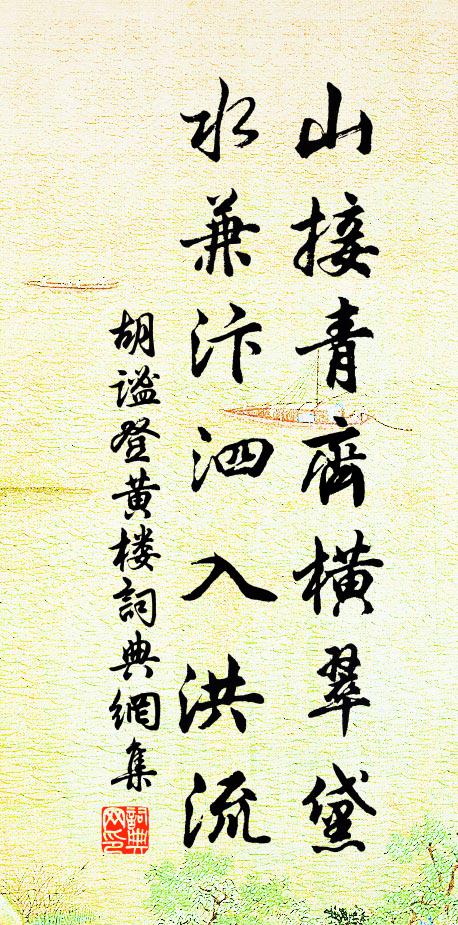 山接青齊橫翠黛
水兼汴泗入洪流
胡谧登黄楼詞典網集
詞典網印